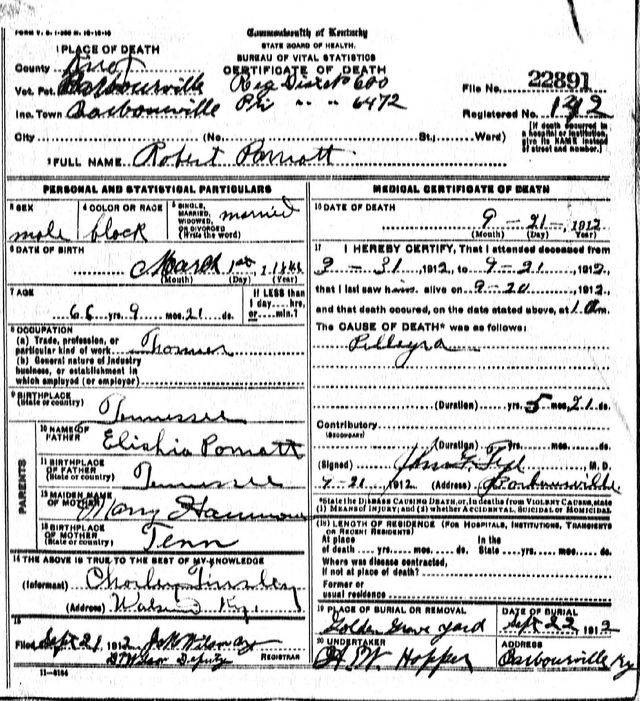 FORM V. S. 1-
Commonwealth of Kentucky
STATE BOARD OF HEALTH.
BUREAU OF VITAL STATISTICS
CERTIFICATE OF DEATH
1 PLACE OF DEATH
County Knox
Vot. Pct. Barbourville Reg Dist No 600
Inc. Town Barbourville Pri " " 6472
File No. 22891
Registered No.
[If death occurred in a hospital or institution, give its NAME instead of street and number.]
City (No. St.; Ward)
2 FULL NAME Robert
PERSONAL AND STATISTICAL PARTICULARS
3 SEX male
4 COLOR OR RACE black
5 SINGLE, MARRIED, WIDOWED OR DIVORCED (Write the word) married
6 DATE OF BIRTH
March 1st, 
(Month) (Day) (Year)
7 AGE
66 yrs. 9 mos. 21 ds.
If LESS than 1 day....hrs. or....min.?
8 OCCUPATION
(a) Trade, profession, or particular kind of work
(b) General nature of industry business, or establishment in which employed (or employer)
9 BIRTHPLACE (State or country) Tennessee
PARENTS
10 NAME OF FATHER
11 BIRTHPLACE OF FATHER (State or country) Tennessee
12 MAIDEN NAME OF MOTHER Mary
13 BIRTHPLACE OF MOTHER (State or country) Tenn
14 THE ABOVE IS TRUE TO THE BEST OF MY KNOWLEDGE
(Informant) Charley Tinsley
(Address) Ky.
15
Filed Sept 21, 1912
Deputy REGISTRAR
MEDICAL CERTIFICATE OF DEATH
16 DATE OF DEATH
9 - 21 -, 1912
(Month) (Day) (Year)
17 I HEREBY CERTIFY, That I attended deceased from
1912, to 9 - 21, 1912,
that I last saw him alive on 9 - 20, 1912
and that death occured, on the date stated above, at 1 am.
The CAUSE OF DEATH* was as follows:
(Duration) yrs. 5 mos. 21 ds.
Contributory
(SECONDARY)
(Duration) yrs. mos. ds.
(Signed) M. D.
1912 (Address) Barbourville
*State the DISEASE CAUSING DEATH, or, in deaths from VIOLENT CAUSES, state (1) MEANS OF INJURY; and (2) whether ACCIDENTAL, SUICIDAL or HOMICIDAL
(18) LENGTH OF RESIDENCE (FOR HOSPITALS, INSTITUTIONS, TRANSIENTS OR RECENT RESIDENTS)
At place of death yrs. mos. ds. In the State yrs. mos. ds.
Where was disease contracted, if not at place of death?
Former or usual residence
19 PLACE OF BURIAL OR REMOVAL
Golden Grove yard
DATE OF BURIAL
Sept 22, 1912
20 UNDERTAKER
Hopper
ADDRESS
Barbourville Ky
11-6184